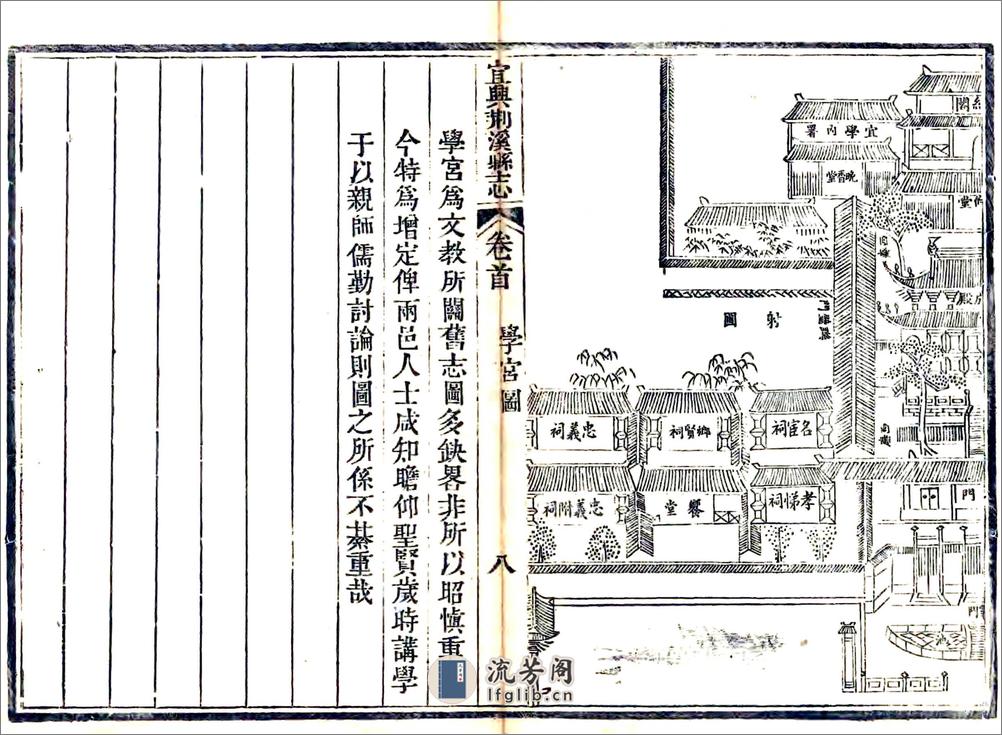 閣
宜學內署
晚香堂
堂
殿
射圃
名宦祠
鄉賢祠
忠義祠
孝悌祠
饗堂
忠義附祠
門
門
宜興荊溪縣志
卷首
學宮圖
八
學宮為文教所關舊志圖多缺畧非所以昭慎重
今特為增定俾兩邑人士咸知瞻仰聖賢歲時講學
于以親師儒勤討論則圖之所係不綦重哉
流芳阁
lfglib.cn